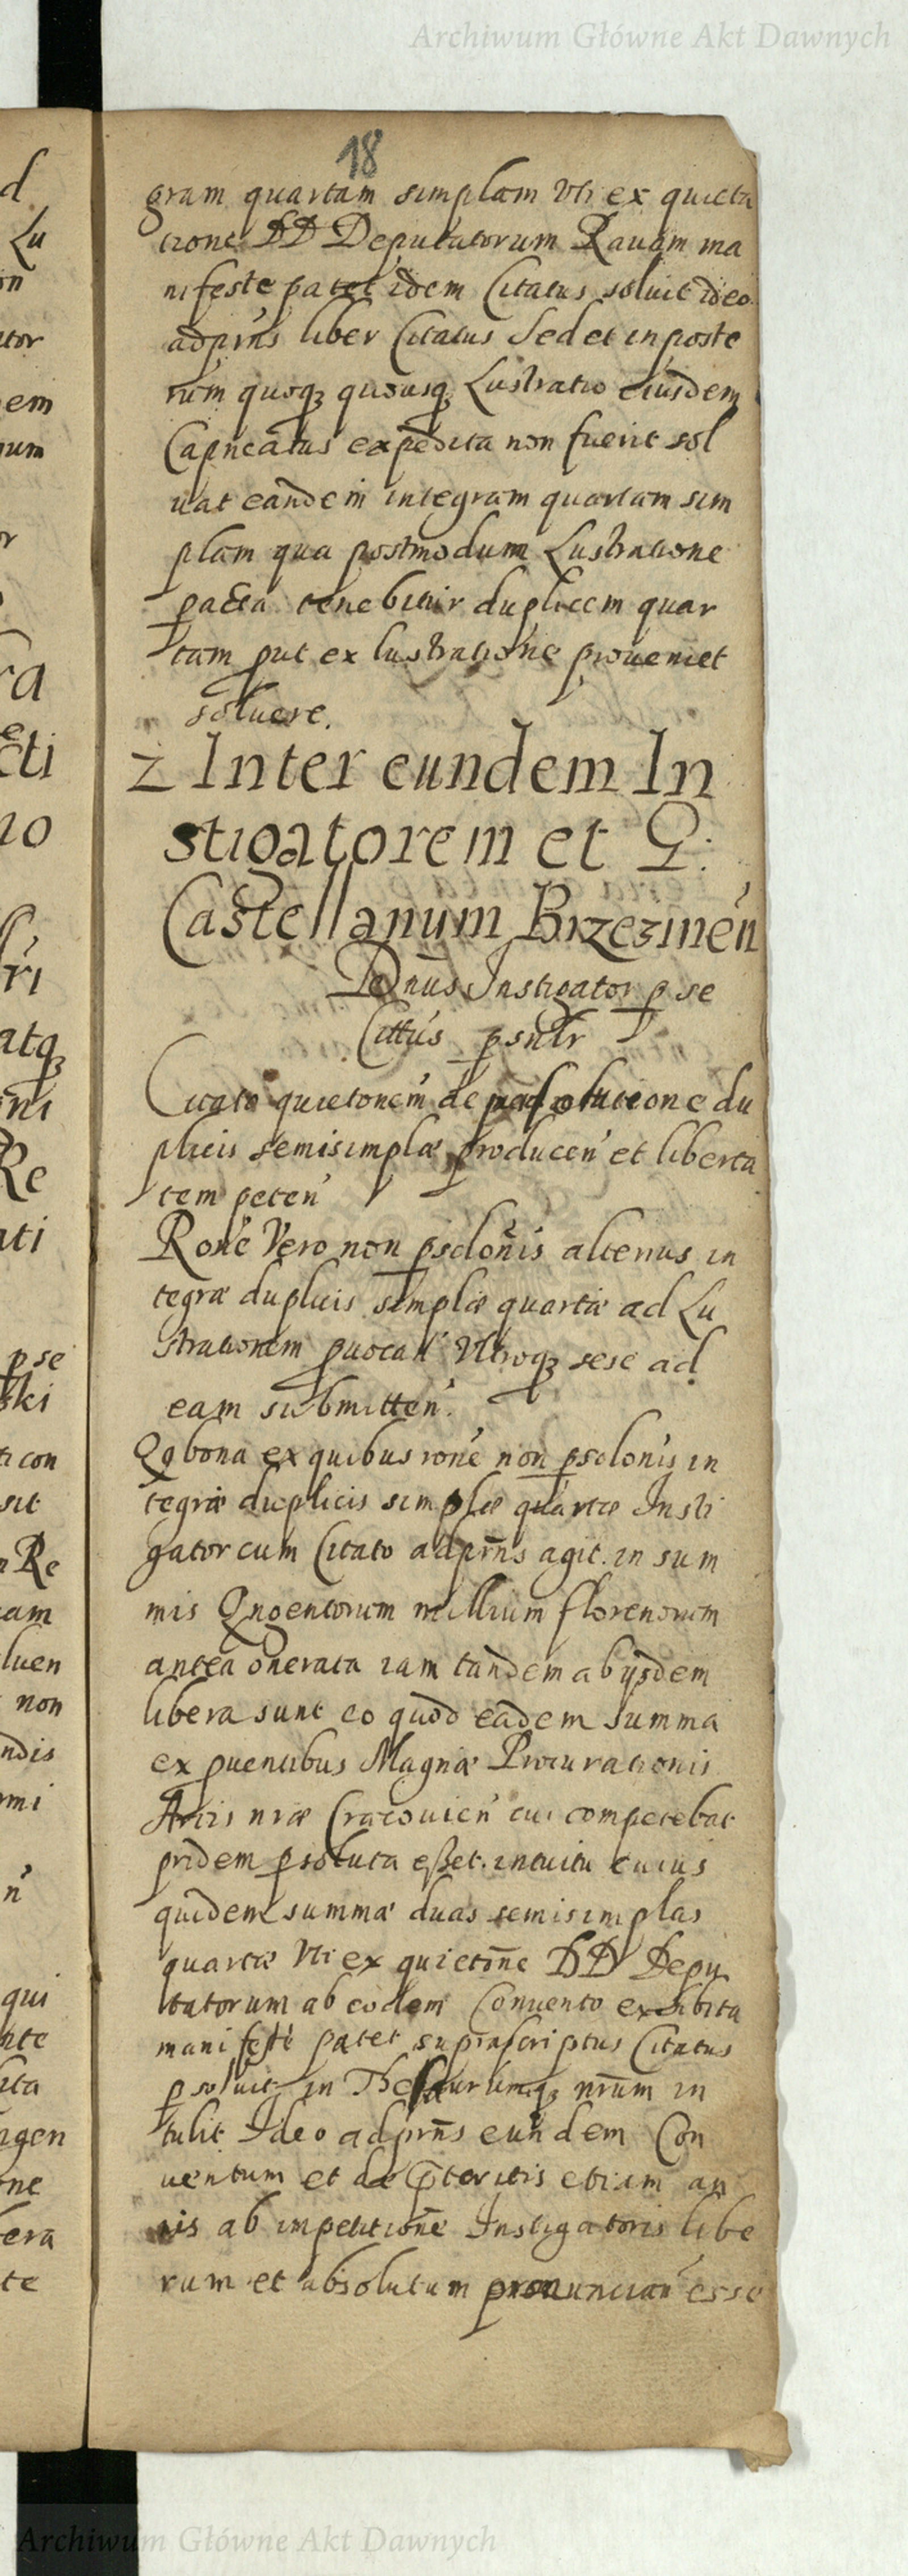 Archiwum Główne Akt Dawnych
18
gram quartam simplam Vti ex quieta
tione DD Deputatorum Ravam ma
nifeste patet idem Citatus soluit ideo
adprns liber Citatus Sed et in poste
rum quoqz quousqz Lustratio eiusdem
Capitneatus expedita non fuerit sol
uat eandem integram quartam sim
plam qua postmodum Lustratione
pacta tenebitur duplicem quar
tam put ex lustratione proveniet
soluere.
2 Inter eundem In
stigatorem et G:
Castellanum Brzezinen
Dnus Instigator p se
Cittus psnlr
Citato quietonem de psolutione du
plicis semisimplæ producen et liberta
tem peten
Rone Vero non psolonis alterius in
tegræ duplicis simplæ quartæ ad Lu
strationem puocan Vltroqz sese ad
eam submitten.
Qq bona ex quibus rone non psolonis in
tegræ duplicis simplæ quartæ Insti
gator cum Citato adprns agit in sum
mis Qngentorum millium florenorum
antea onerata iam tandem ab ijsdem
libera sunt eo quod eadem summa
ex puentibus Magnæ Procurationis
Arcis nræ Cracovien cui competebat
pridem psoluta esset intuitu cuius
quidem summæ duas semisimplas
quartæ Vti ex quietone DD Depu
tatorum ab eodem Convento exhibita
manifeste patet suprascriptus Citatus
psoluit in Thesaurumqz nrum in
tulit Ideo adprns eundem Con
ventum et de pteritis etiam an
nis ab inpetitione Instigatoris libe
rum et absolutum pronuncian esse
Archiwum Główne Akt Dawnych